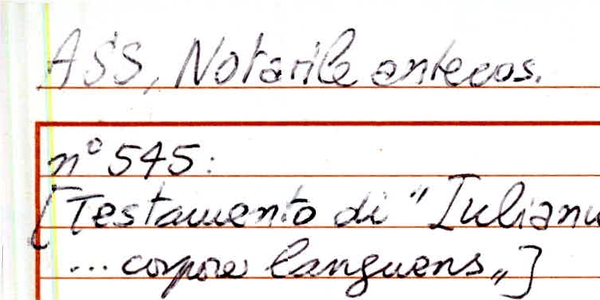 ASS, Notarile antecos.
n° 545:
[Testamento di "Iulianu
... corpore languens„]